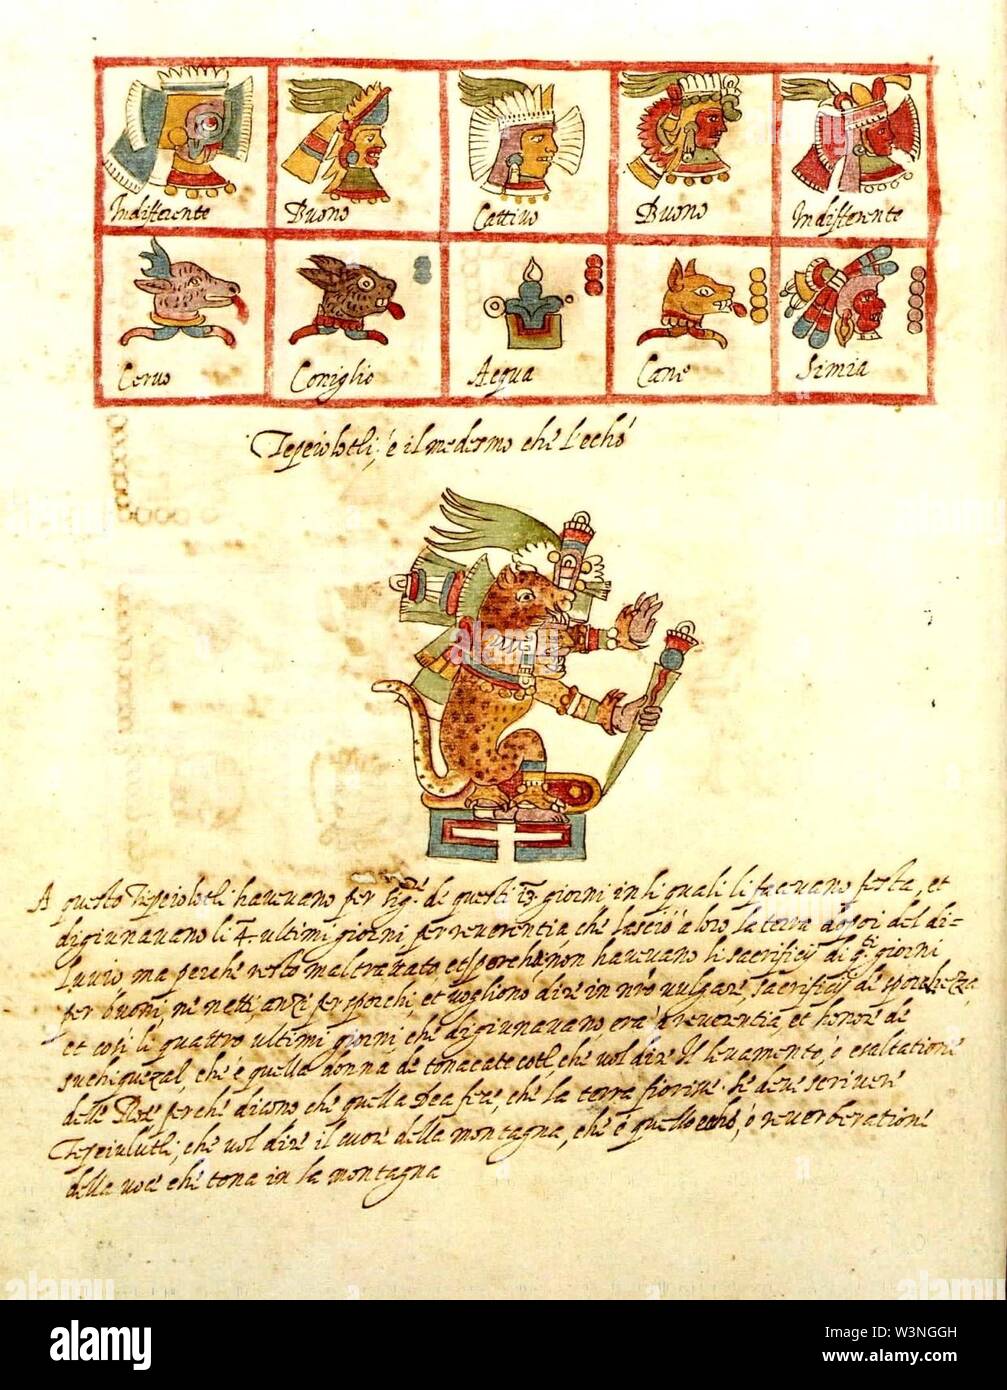 Indifferente Buono Cattiuo Buono Indifferente
Ceruo Coniglio Acqua Cane Simia
Tepeiolotli; é il medesmo ché l'echó
A questo Tepeiolotli haueuano per sig.re dé questi 13. giorni in li quali li faceuano festa, et
digiunauano li 4. ultimi giorni per reuerentia ché lasció a loro la terra dopoi del di=
luuio ma perché restó maltrattato, et sporcha, non haueuano li sacrificij di q.sti giorni
per buoni, né netti, anzé per sporchi, et uogliono diré in nró uulgaré, sacrificij dé sporchezza,
et cosi li quattro ultimi giorni, ché digiunauano, era á reuerentia, et honoré dé
suchiquezal, ché é quella donna dé tonacatecotl, ché uol diré Il leuamento, ó esaltationé
dellé Rosé perché dicono ché quella Dea fecé, ché la terra fiorissé. Sé deué scriueré
Tepeiulutli; ché uol diré il cuoré della montagna, ché é quello echó, ó reuerberationé
della uocé ché tona in la montagna
alamy
alamy
Image ID: W3NGGH
www.alamy.com